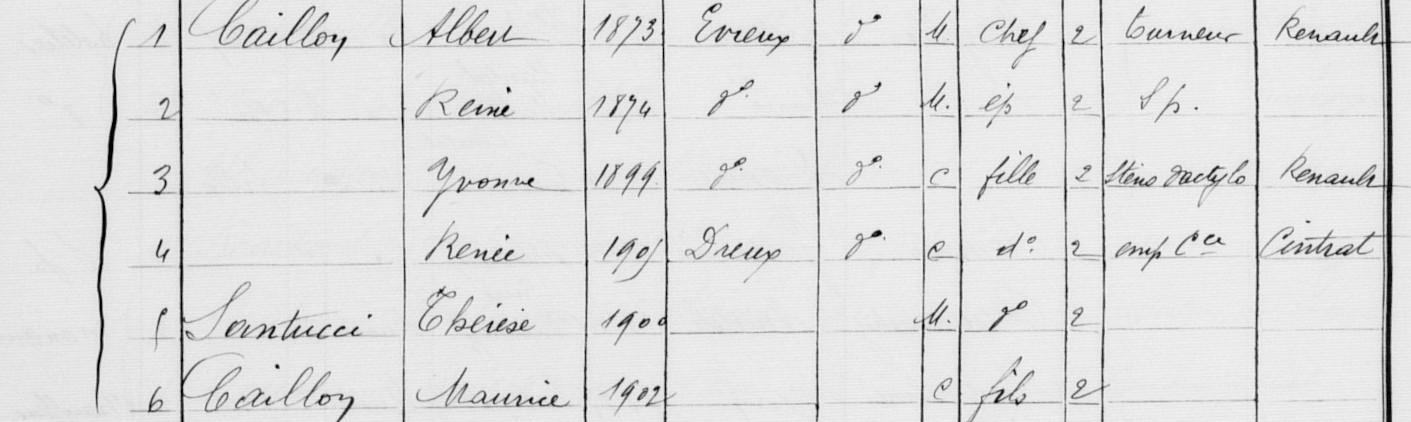 1 Cailloy Albert 1873 Evreux do M. Chef 2 Tourneur Renault
2 Reine 1874 do do M. ép 2 S p.
3 Yvonne 1899 do do C fille 2 Sténo dactylo Renault
4 Renée 1905 Dreux do C do 2 emp Cce Cintrat
5 Santucci Thérèse 1900 M. do 2
6 Cailloy Maurice 1902 C fils 2